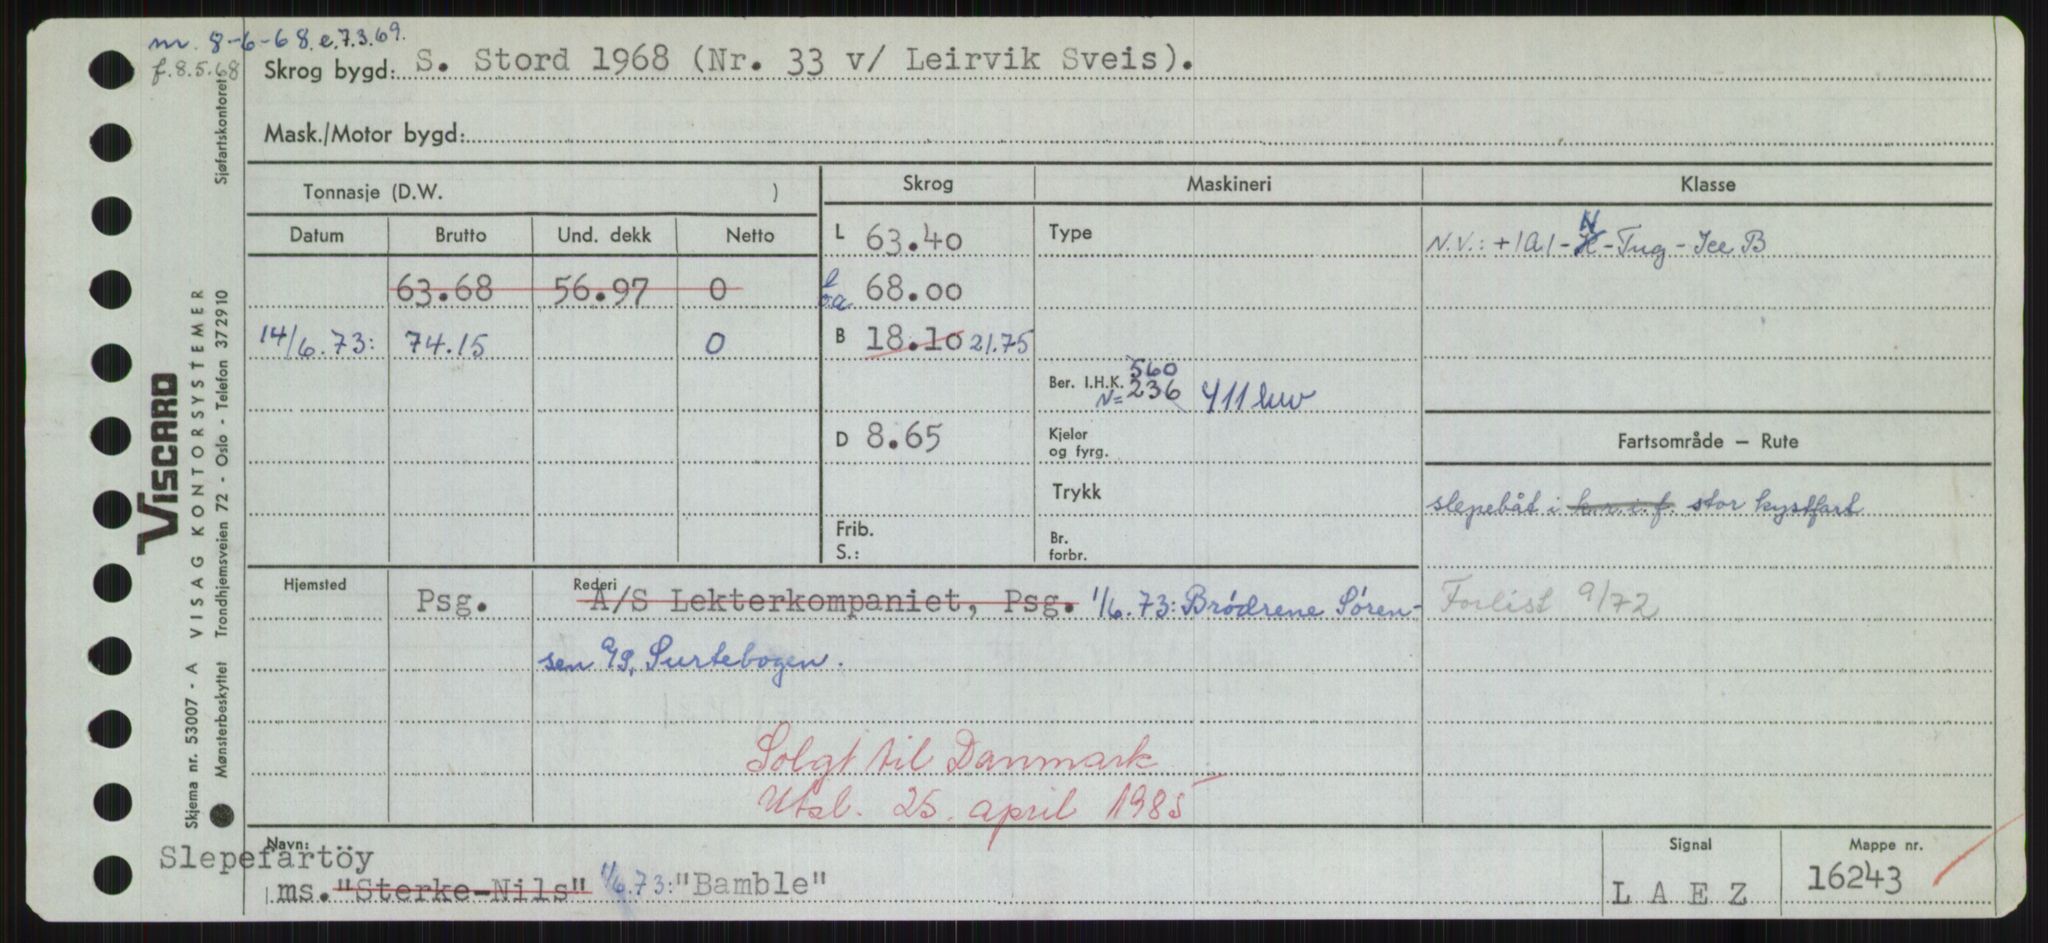 m. 8-6-68. e.7.3.69.
f. 8.5.68
Skrog bygd: S. Stord 1968 (Nr. 33 v/ Leirvik Sveis).
Mask./Motor bygd:
Tonnasje (D.W. )
Skrog
Maskineri
Klasse
Datum
Brutto
Und. dekk
Netto
63.68 56.97 0
14/6.73: 74.15 0
L 63.40
L o.a. 68.00
B 18.10 21.75
D 8.65
Frib.
S.:
Type
560
Ber. I.H.K. 236 411 kw
N=
Kjeler
og fyrg.
Trykk
Br.
forbr.
N
N.V.: +1A1-K-Tug-Ice B
Fartsområde – Rute
slepebåt i k.r.i.f. stor kystfart
Forlist 9/72
Hjemsted
Psg.
Rederi
A/S Lekterkompaniet, Psg. 1/6.73: Brødrene Søren-
sen A/S, Surtebogen.
Solgt til Danmark
Utsl. 25. april 1985
Navn:
Slepefartöy
ms. "Sterke-Nils" 1/6.73: "Bamble"
Signal
L A E Z
Mappe nr.
16243
VISCARD
Skjema nr. 53007 - A VISAG KONTORSYSTEMER
Mønsterbeskyttet Trondhjemsveien 72 - Oslo - Telefon 372910 Sjøfartskontoret